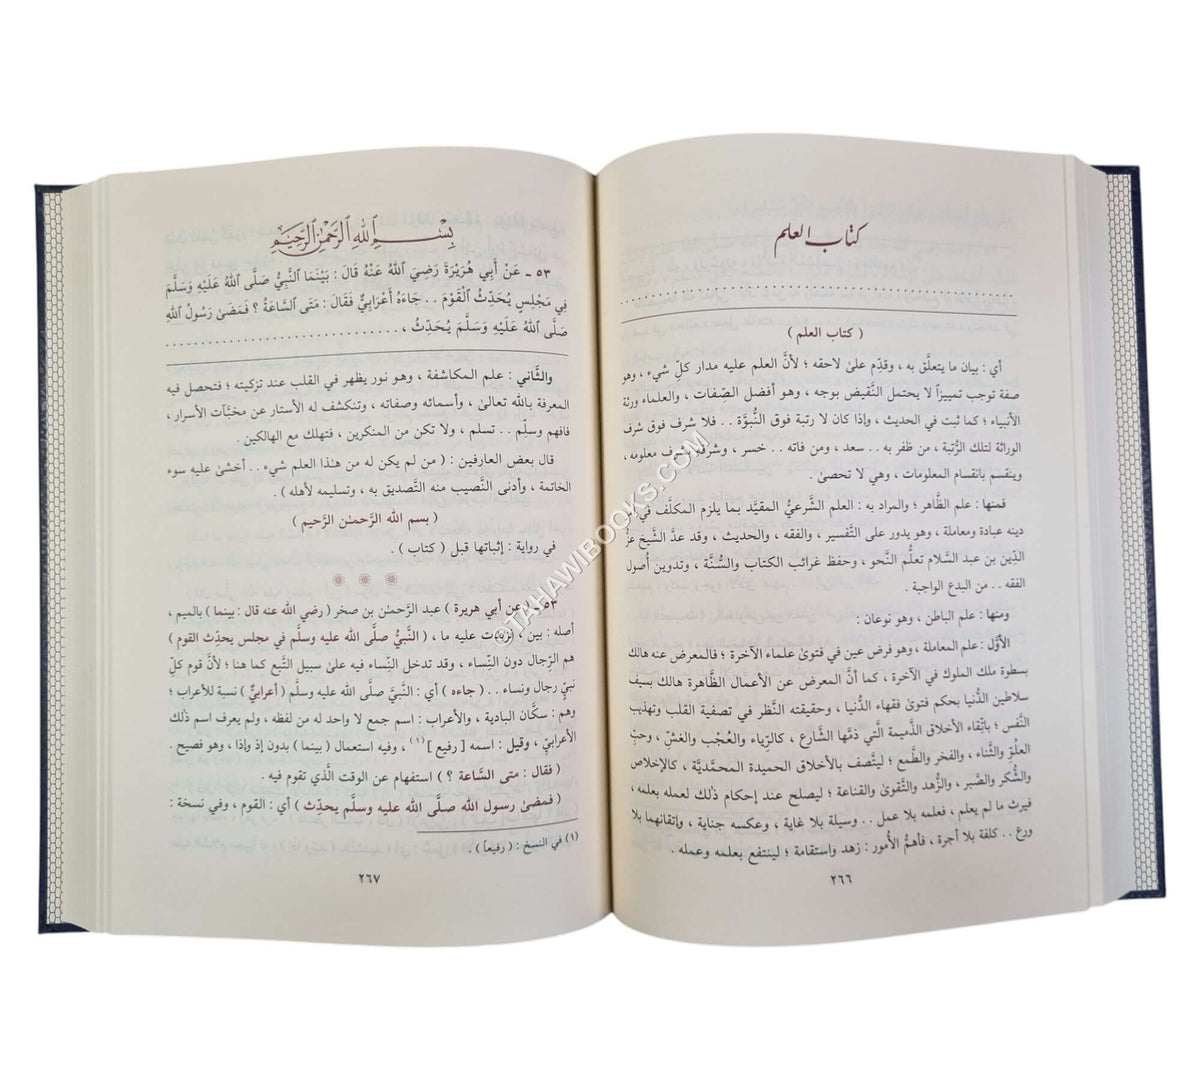 كتاب العلم
( كتاب العلم )
أي : بيان ما يتعلَّق به ، وقدّم علىٰ لاحقه ؛ لأنَّ العلم عليه مدار كلِّ شيء ، وهو
صفة توجب تمييزاً لا يحتمل النَّقيض بوجه ، وهو أفضل الصِّفات ، والعلماء ورثة
الأنبياء ؛ كما ثبت في الحديث ، وإذا كان لا رتبة فوق النُّبوَّة . . فلا شرف فوق شرف
الوراثة لتلك الرُّتبة ، من ظفر به . . سعد ، ومن فاته . . خسر ، وشرفه بشرف معلومه ،
وينقسم بانقسام المعلومات ، وهي لا تحصىٰ .
فمنها : علم الظَّاهر ؛ والمراد به : العلم الشَّرعيُّ المقيَّد بما يلزم المكلَّف في أمر
دينه عبادة ومعاملة ، وهو يدور على التَّفسير ، والفقه ، والحديث ، وقد عدَّ الشَّيخ عزُّ
الدِّين بن عبد السَّلام تعلُّم النَّحو ، وحفظ غرائب الكتاب والسُّنَّة ، وتدوين أُصول
الفقه . . من البدع الواجبة .
ومنها : علم الباطن ، وهو نوعان :
الأوَّل : علم المعاملة ، وهو فرض عين في فتوىٰ علماء الآخرة ؛ فالمعرض عنه هالك
بسطوة ملك الملوك في الآخرة ، كما أنَّ المعرض عن الأعمال الظَّاهرة هالك بسيف
سلاطين الدُّنيا بحكم فتوىٰ فقهاء الدُّنيا ، وحقيقته النَّظر في تصفية القلب وتهذيب
النَّفس ؛ باتِّقاء الأخلاق الذَّميمة الَّتي ذمَّها الشَّارع ، كالرِّياء والعُجْب والغشِّ ، وحبِّ
العلوِّ والثَّناء ، والفخر والطَّمع ؛ ليتَّصف بالأخلاق الحميدة المحمَّديَّة ، كالإخلاص
والشُّكر والصَّبر ، والزُّهد والتَّقوىٰ والقناعة ؛ ليصلح عند إحكام ذٰلك لعمله بعلمه ،
فيرث ما لم يعلم ، فعلمه بلا عمل . . وسيلة بلا غاية ، وعكسه جناية ، وإتقانهما بلا
ورع . . كلفة بلا أجرة ، فأهمُّ الأُمور : زهد واستقامة ؛ لينتفع بعلمه وعمله .
٢٦٦
بِسْمِ ٱللهِ ٱلرَّحْمٰنِ ٱلرَّحِيمِ
٥٣ ـ عَنْ أَبِي هُرَيْرَةَ رَضِيَ ٱللهُ عَنْهُ قَالَ : بَيْنَمَا النَّبِيُّ صَلَّى ٱللهُ عَلَيْهِ وَسَلَّمَ
فِي مَجْلِسٍ يُحَدِّثُ الْقَوْمَ . . جَاءَهُ أَعْرَابِيٌّ فَقَالَ : مَتَى السَّاعَةُ ؟ فَمَضَىٰ رَسُولُ ٱللهِ
صَلَّى ٱللهُ عَلَيْهِ وَسَلَّمَ يُحَدِّثُ ، . . . . . . . . . . . . . . . . . . . .
والثَّاني : علم المكاشفة ، وهو نور يظهر في القلب عند تزكيته ؛ فتحصل فيه
المعرفة بالله تعالىٰ ، وأسمائه وصفاته ، وتنكشف له الأستار عن مخبَّآت الأسرار ،
فافهم وسلِّم . . تسلم ، ولا تكن من المنكرين ، فتهلك مع الهالكين .
قال بعض العارفين : ( من لم يكن له من هٰذا العلم شيء . . أخشىٰ عليه سوء
الخاتمة ، وأدنى النَّصيب منه التَّصديق به ، وتسليمه لأهله ) .
( بسم الله الرَّحمٰن الرَّحيم )
في رواية : إثباتها قبل ( كتاب ) .
٥٣ـ ( عن أبي هريرة ) عبد الرَّحمٰن بن صخر ( رضي الله عنه قال : بينما ) بالميم ،
أصله : بين ، زيدت عليه ما ، ( النَّبيُّ صلَّى الله عليه وسلَّم في مجلس يحدِّث القوم )
هم الرِّجال دون النِّساء ، وقد تدخل النِّساء فيه علىٰ سبيل التَّبع كما هنا ؛ لأنَّ قوم كلِّ
نبيٍّ رجال ونساء . . ( جاءه ) أي : النَّبيَّ صلَّى الله عليه وسلَّم ( أعرابيٌّ ) نسبة للأعراب ؛
وهم : سكَّان البادية ، والأعراب : اسم جمع لا واحد له من لفظه ، ولم يعرف اسم ذٰلك
الأعرابيِّ ، وقيل : اسمه [ رفيع ](١) ، وفيه استعمال ( بينما ) بدون إذ وإذا ، وهو فصيح .
( فقال : متى السَّاعة ؟ ) استفهام عن الوقت الَّذي تقوم فيه .
( فمضىٰ رسول الله صلَّى الله عليه وسلَّم يحدِّث ) أي : القوم ، وفي نسخة :
(١) في النسخ : ( رفيعاً )
٢٦٧
© TAHAWIBOOKS.COM